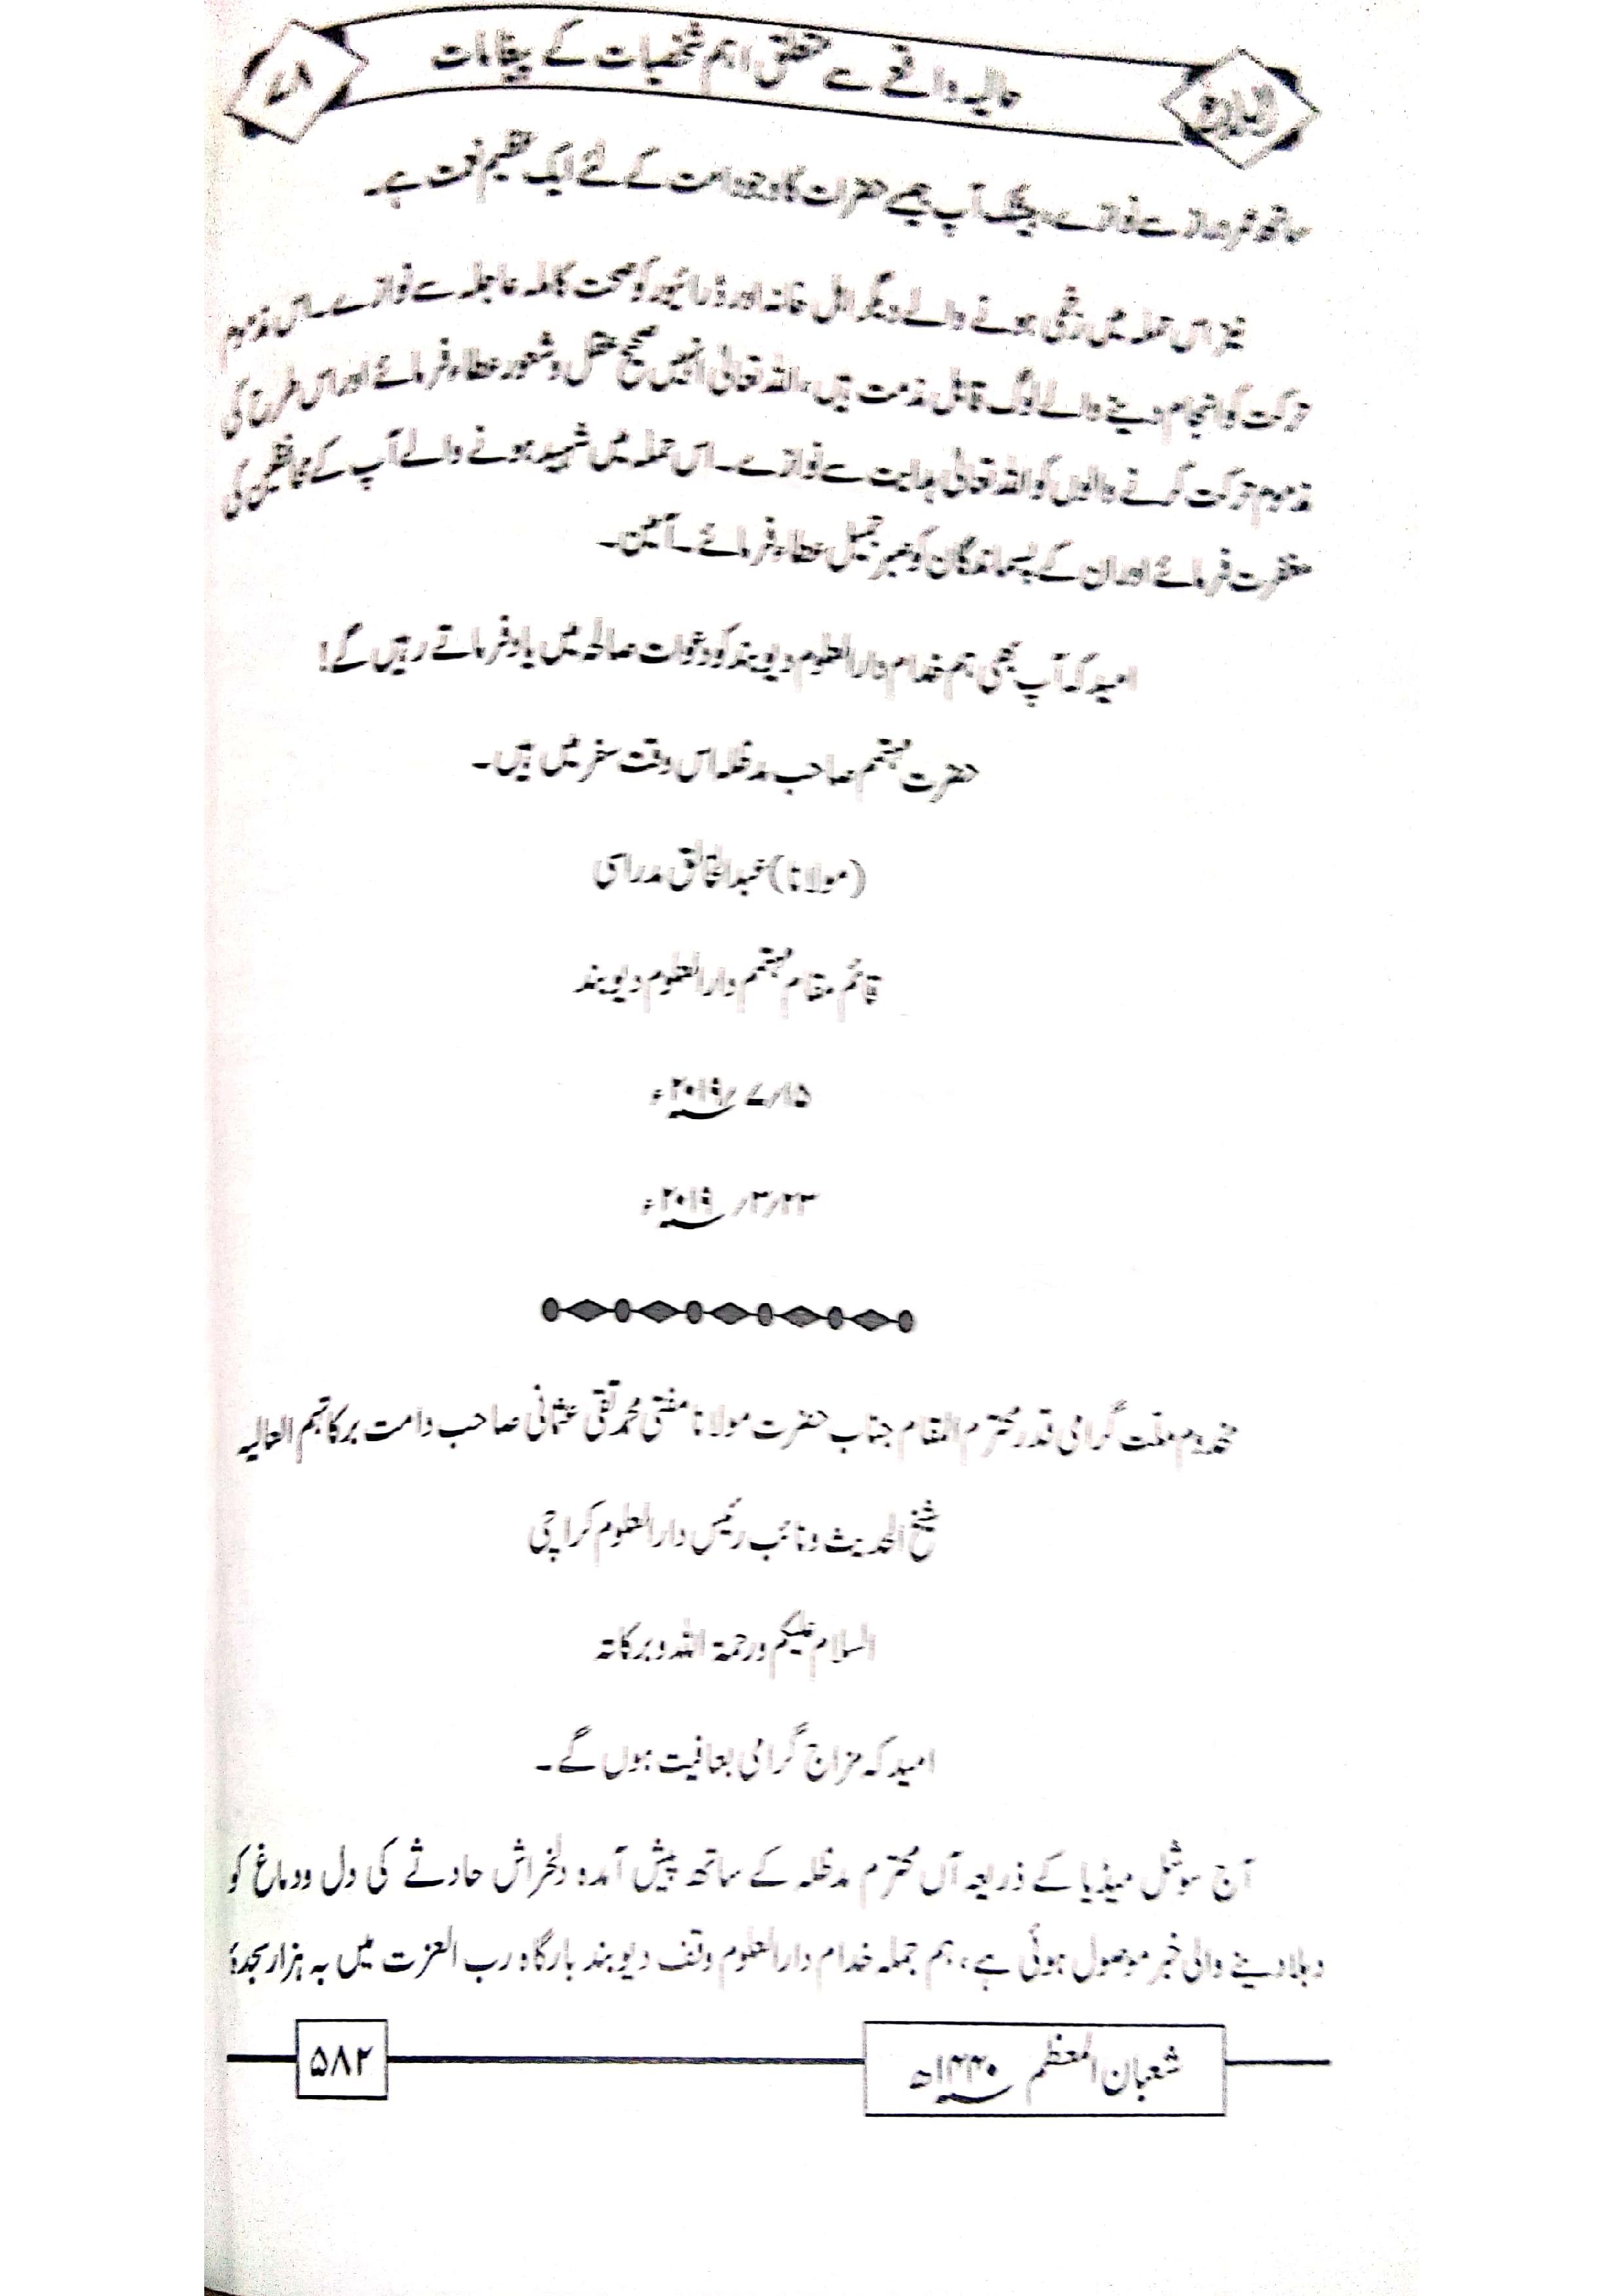 البلاغ
حالیہ واقعے سے متعلق اہم شخصیات کے پیغامات
۷۸
ساتھ عمر دراز سے نوازے، بیشک آپ جیسے حضرات کا وجود امت کے لئے ایک عظیم نعمت ہے۔
نیز اس حملہ میں زخمی ہونے والے دیگر اہل خانہ اور ڈرائیور کو صحت کاملہ عاجلہ سے نوازے۔ اس مذموم
حرکت کو انجام دینے والے لوگ قابل مذمت ہیں، اللہ تعالیٰ انہیں صحیح عقل و شعور عطاء فرمائے اور اس طرح کی
مذموم حرکت کرنے والوں کو اللہ تعالیٰ ہدایت سے نوازے۔ اس حملہ میں شہید ہونے والے آپ کے محافظین کی
مغفرت فرمائے اور ان کے پسماندگان کو صبر جمیل عطاء فرمائے۔ آمین۔
امید کہ آپ بھی ہم خدام دارالعلوم دیوبند کو دعوات صالحہ میں یاد فرماتے رہیں گے!
حضرت مہتمم صاحب مدظلہ اس وقت سفر میں ہیں۔
(مولانا) عبدالخالق مدراسی
قائم مقام مہتمم دارالعلوم دیوبند
۱۵/۷/۲۰۱۹ء
۲۳/۳/ ۲۰۱۹ء
مخدوم ملت گرامی قدر محترم المقام جناب حضرت مولانا مفتی محمد تقی عثمانی صاحب دامت برکاتہم العالیہ
شیخ الحدیث و نائب رئیس دارالعلوم کراچی
السلام علیکم ورحمۃ اللہ وبرکاتہ
امید کہ مزاج گرامی بعافیت ہوں گے۔
آج سوشل میڈیا کے ذریعہ آں محترم مدظلہ کے ساتھ پیش آمدہ دلخراش حادثے کی دل ودماغ کو
دہلا دینے والی خبر موصول ہوئی ہے، ہم جملہ خدام دارالعلوم وقف دیوبند بارگاہ رب العزت میں بہ ہزار سجدۂ
شعبان المعظم ۱۴۴۰ھ
۵۸۲